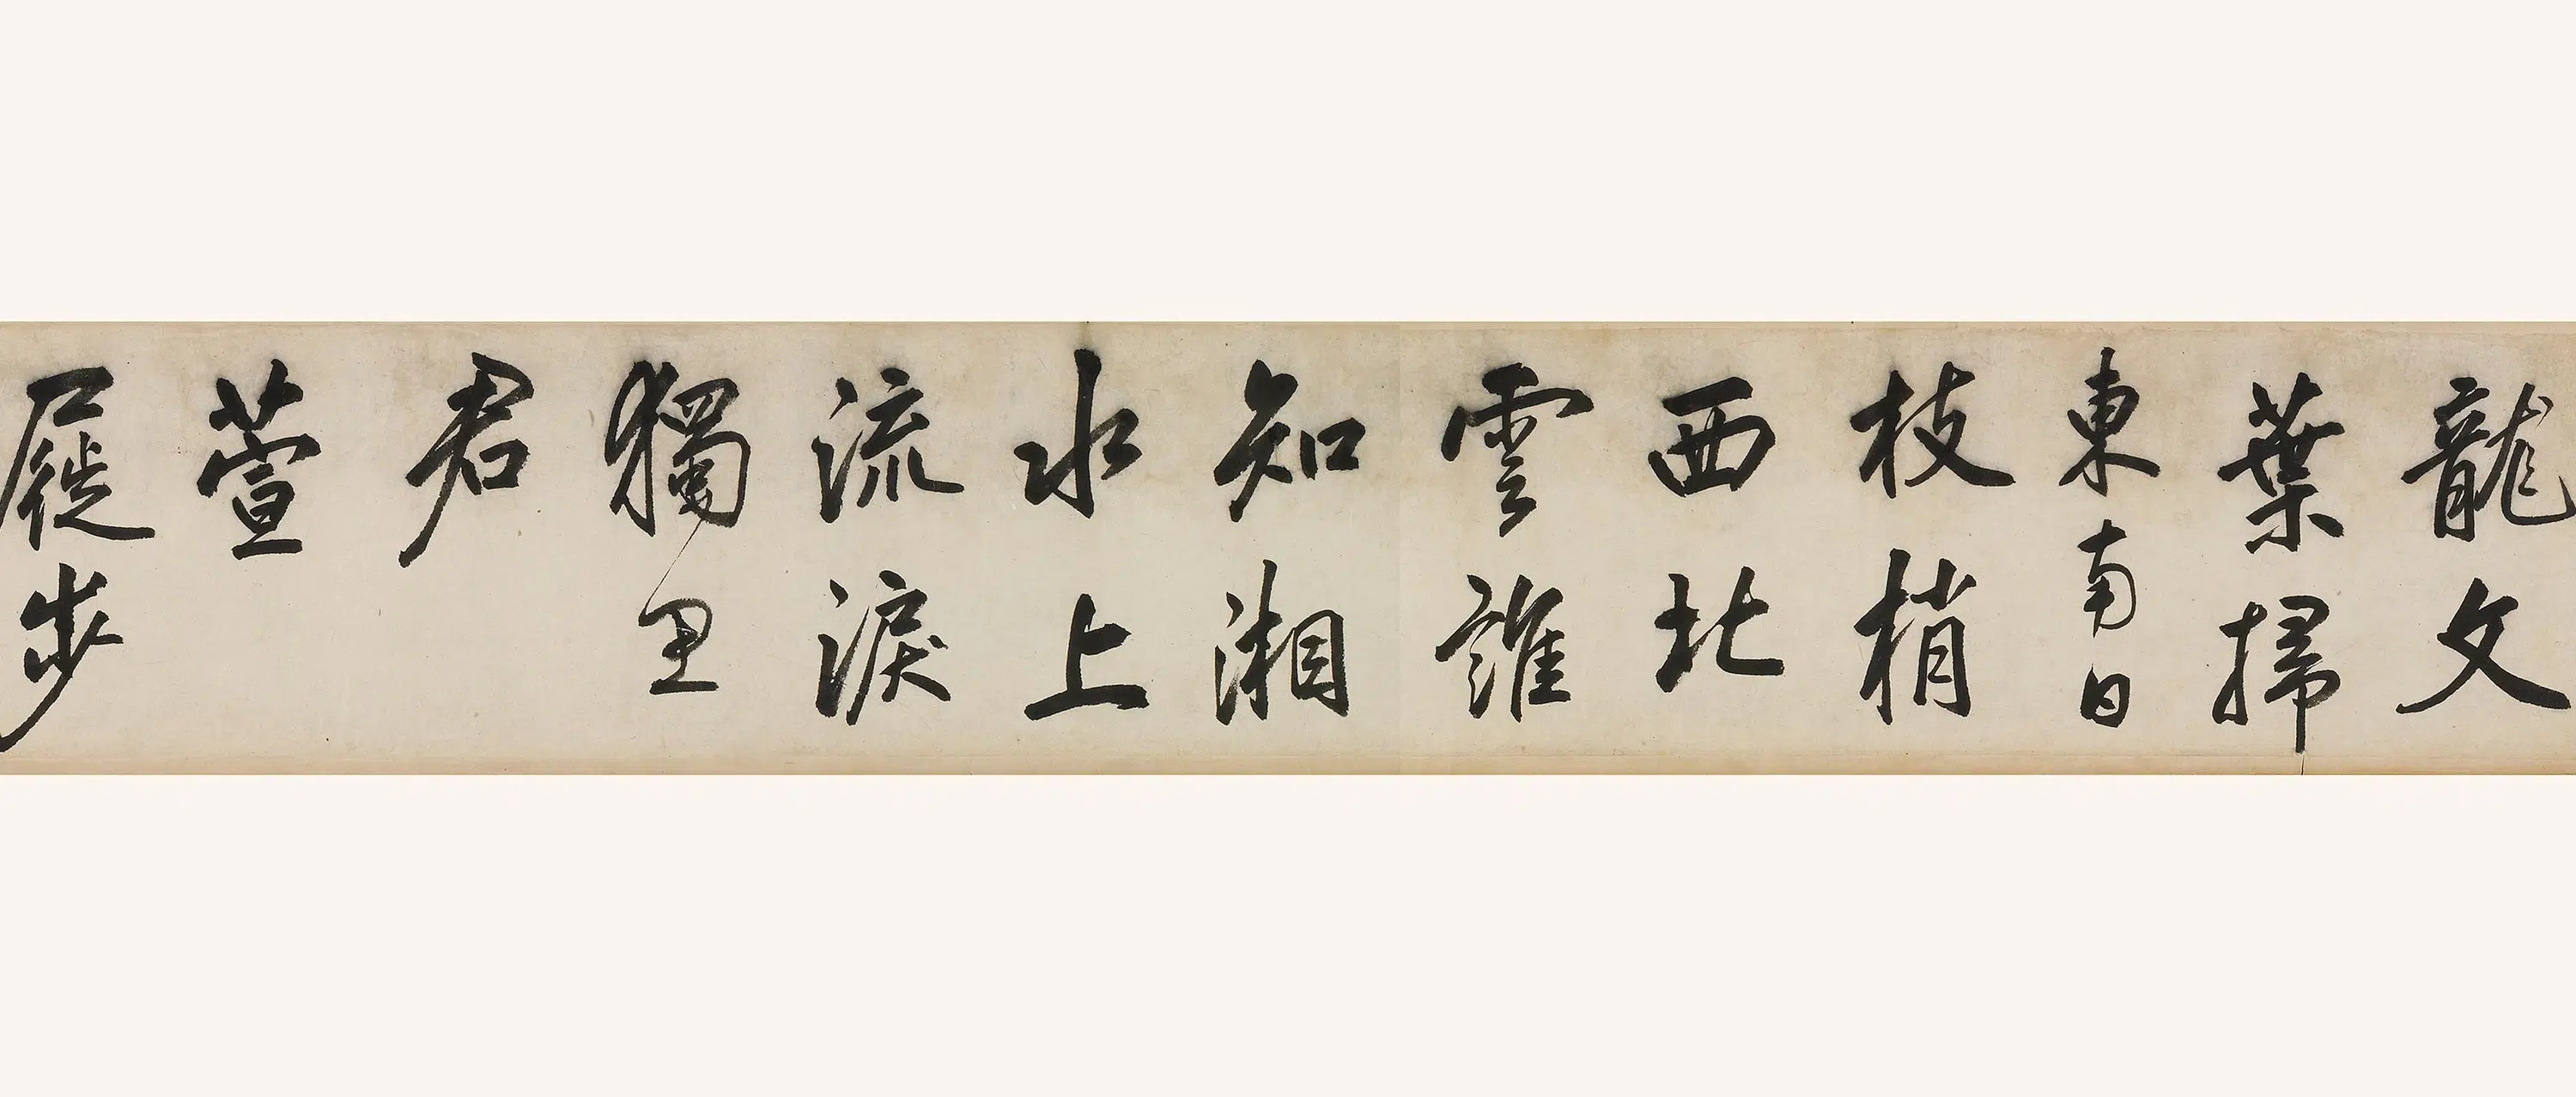 龍文
葉掃
東南日
枝梢
西北
雲誰
知湘
水上
流淚
獨思
君
萱
屣步